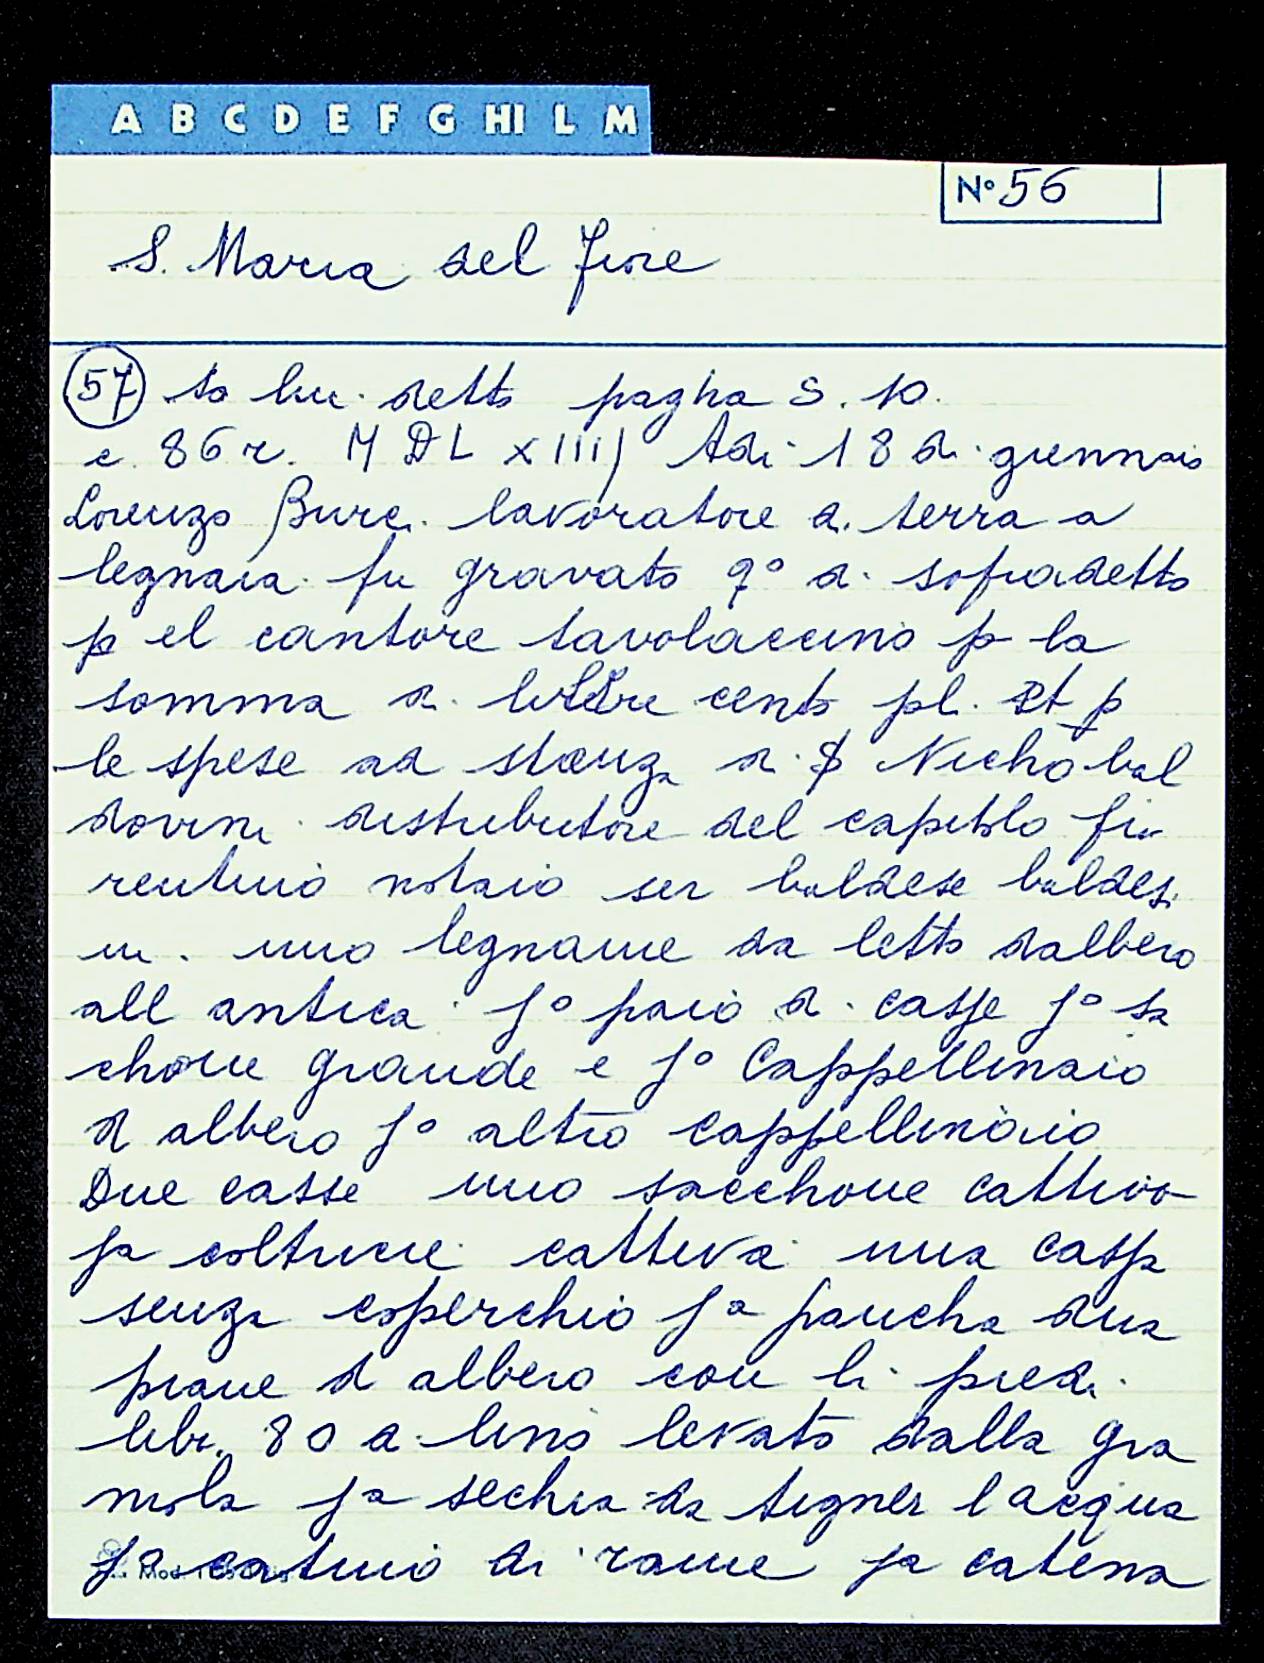 A B C D E F G HI L M
Nº 56
S. Maria del Fiore
57 to lu. detto pagha S. 10.
c. 86 r. MDLXIIIJ Adi 18 di gennaio
Lorenzo lavoratore di terra a
legnaia fu gravato qº di sopradetto
p el cantore tavolaccino p la
somma di cento pl. Et p
le spese ad stanza di Nicho bal
dovini distributore del capitolo fio
rentino notaio ser baldese baldesi
ni. uno legname da letto dalbero
all antica jº paio di casse jº sa
chone grande e jº Cappellinaio
d albero jº altro cappellinaio
Due casse uno sacchone cattivo
ja coltrice cattiva una cassa
senza coperchio ja pancha dua
piane d albero con li piedi
libr. 80 di lino levato dalla gra
mola ja sechia da tigner l acqua
catino di rame ja catena